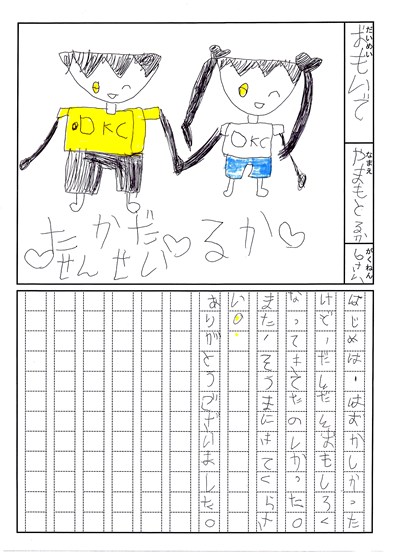 だいめい
おもいで
なまえ
やまもと るか
がくねん
6さい
DKC
DKC
♡たかだ
せんせい♡るか♡
はじめは、はずかしかった
けど、だんだんおもしろく
なってきてたのしかった。
また、そうまにはてくらさ
い。
ありがとうございました。